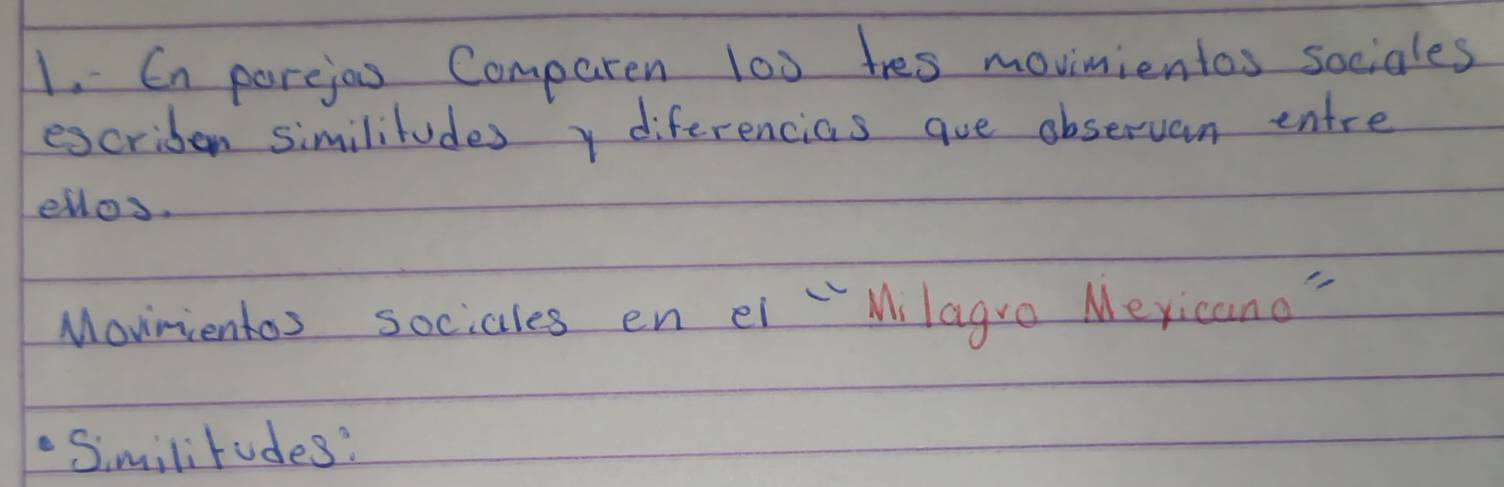 1.- En parejas Comparen los tres movimientos sociales
escriben similitudes y diferencias que observan entre
ellos.
Movimientos sociales en el "Milagro Mexicano"
• Similitudes: